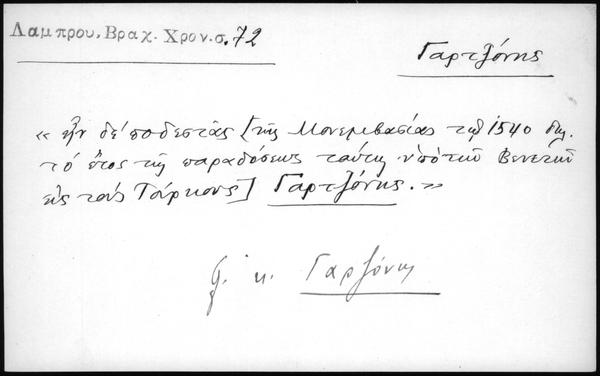 Λαμπρου, Βραχ. Χρον. σ. 72
Γαρτζόνης
« ἦν δέ ποδεστᾶς [τῆς Μονεμβασίας τῷ 1540 δηλ.
τό ἔτος τῆς παραδόσεως ταύτης ὑπό τῶν Βενετῶν
εἰς τούς Τούρκους] Γαρτζόνης. »
β. κ. Γαρζόνης